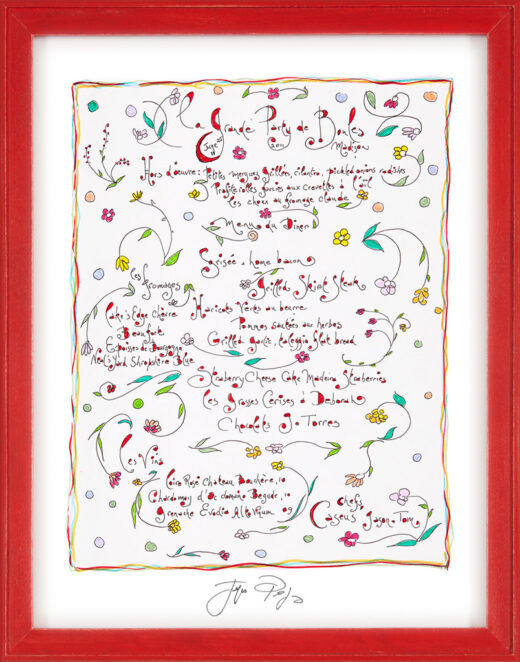 La Grande Party de Boules
June 11
2011
Madison
Hors d'oeuvre: Petits merguez grillées, cilantro, pickled onions radishes
Profiterolles farcies aux crevettes à l'ail
les choux au fromage claude
Menu du Diner
Frisée & home bacon
Les fromages
Grilled Skirt Steak
Cake's Edge Chèvre
Haricots Verts au beurre
Beaufort
Pommes sautées au herbes
Epoisses de Bourgogne
Grilled garlic, taleggio flat bread
Neal's Yard Shropshire Blue
Strawberry Cheese Cake Madeira Strawberries
les Grosses Cerises à Deborah
Chocolats J. Torres
Les Vins
Loire Rosé Chateau 10
Chardonnay d'Oc domaine Begude, 10
Grenache Evodia Altovinum 09
Chefs
Caseus Jason-Tom